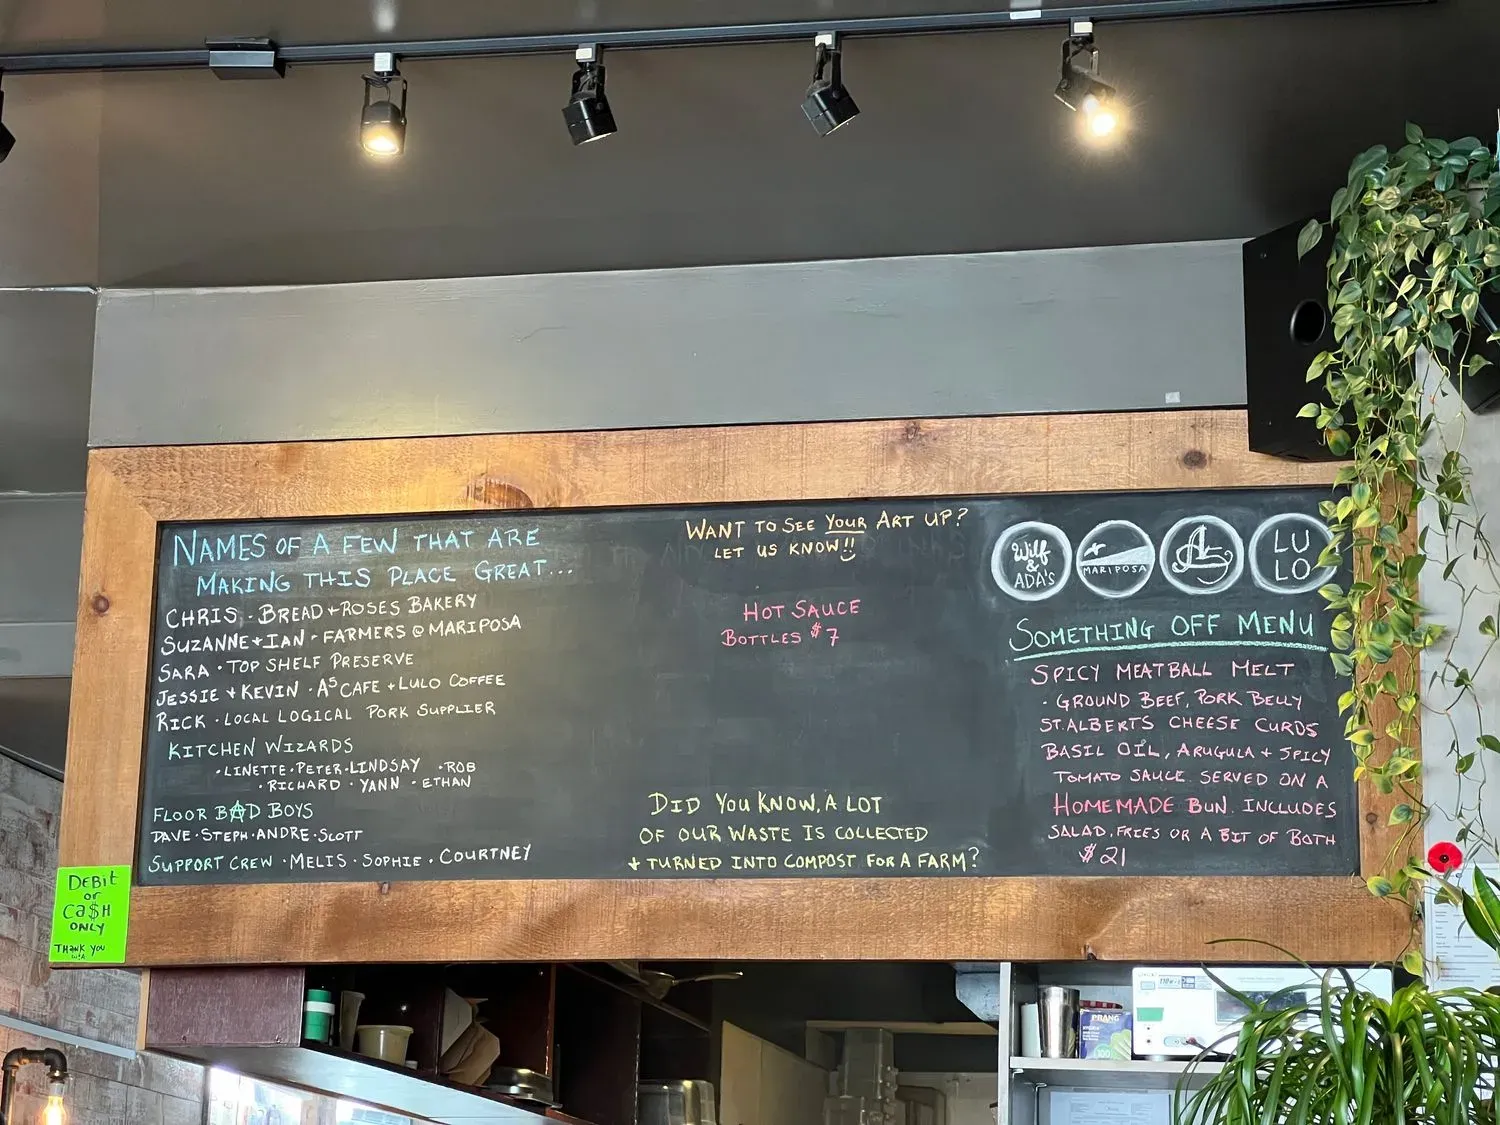 NAMES OF A FEW THAT ARE
MAKING THIS PLACE GREAT...
CHRIS · BREAD + ROSES BAKERY
SUZANNE + IAN · FARMERS @ MARIPOSA
SARA · TOP SHELF PRESERVE
JESSIE + KEVIN · A5 CAFE + LULO COFFEE
RICK · LOCAL LOGICAL PORK SUPPLIER
KITCHEN WIZARDS
· LINETTE · PETER · LINDSAY · ROB
· RICHARD · YANN · ETHAN
FLOOR BAD BOYS
DAVE · STEPH · ANDRE · SCOTT
SUPPORT CREW · MELIS · SOPHIE · COURTNEY
WANT TO SEE YOUR ART UP?
LET US KNOW!!
HOT SAUCE
BOTTLES $7
DID YOU KNOW, A LOT
OF OUR WASTE IS COLLECTED
+ TURNED INTO COMPOST FOR A FARM?
Wilf
&
ADA'S
MARIPOSA
LU
LO
SOMETHING OFF MENU
SPICY MEATBALL MELT
· GROUND BEEF, PORK BELLY
ST. ALBERTS CHEESE CURDS
BASIL OIL, ARUGULA + SPICY
TOMATO SAUCE. SERVED ON A
HOMEMADE BUN. INCLUDES
SALAD, FRIES OR A BIT OF BOTH
$21
DEBiT
or
Ca$H
ONLY
THaNK YOU
W&A
PRANG